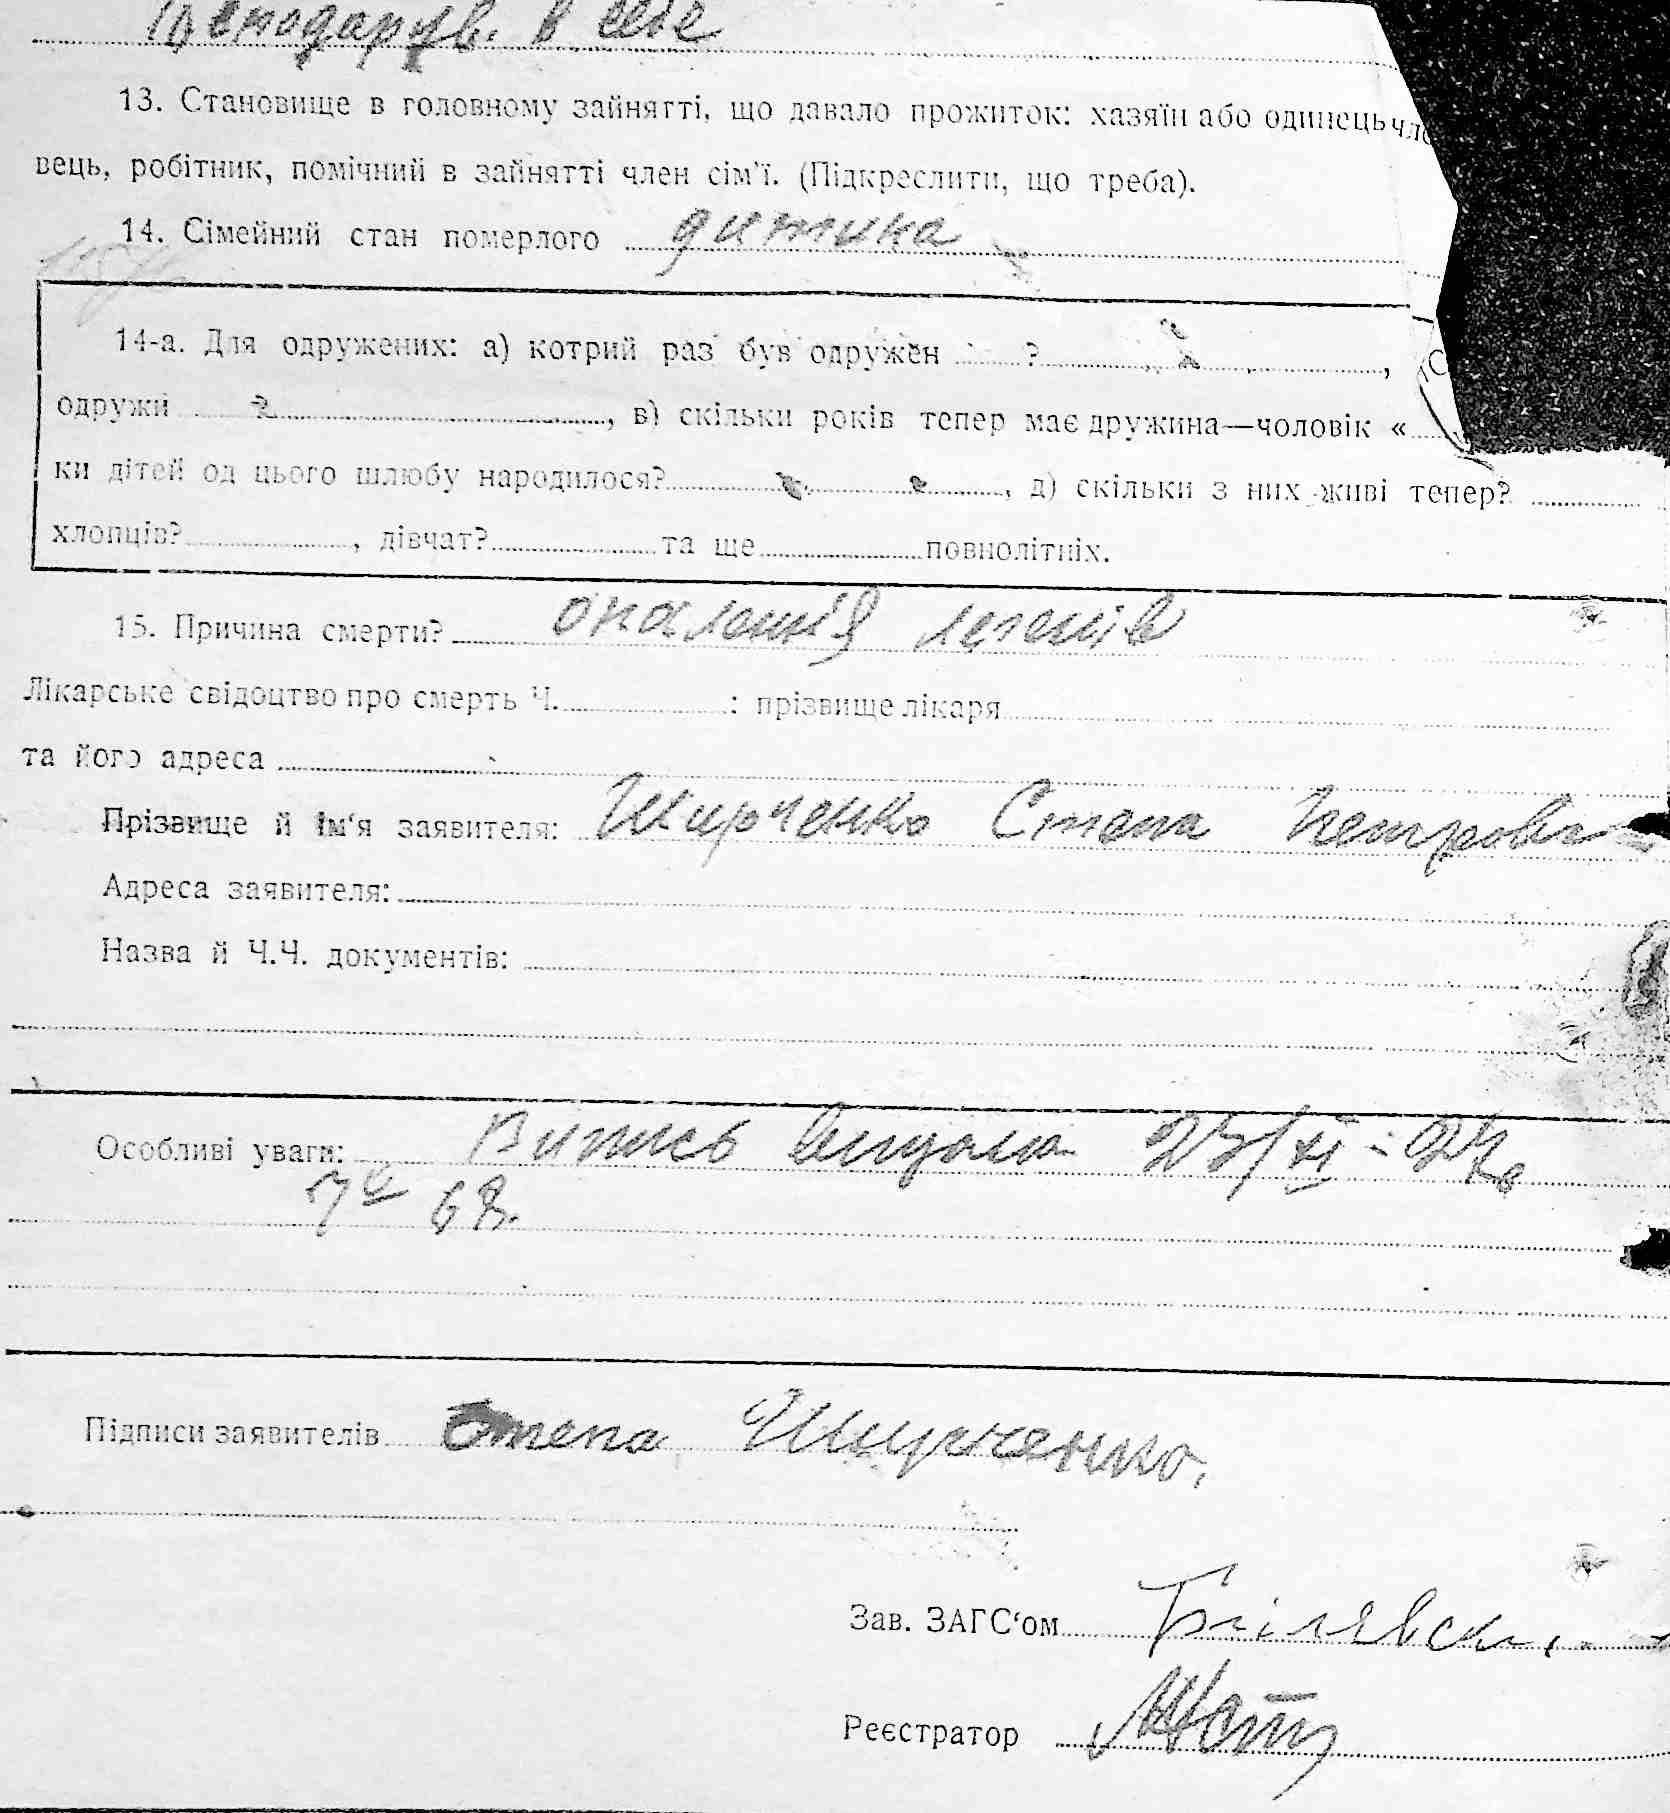 в себе
13. Становище в головному зайнятті, що давало прожиток: хазяїн або одинець
вець, робітник, помічний в зайнятті член сім'ї. (Підкреслити, що треба).
14. Сімейний стан померлого дитина
14-а. Для одружених: а) котрий раз був одружен ?
одружи , в) скільки років тепер має дружина—чоловік «
ки дітей од цього шлюбу народилося? , д) скільки з них живі тепер?
хлопців? , дівчат? та ще повнолітніх.
15. Причина смерти? опаленія легенів
Лікарське свідоцтво про смерть Ч. : прізвище лікаря
та його адреса
Прізвище й ім'я заявителя: Степа Петрови
Адреса заявителя:
Назва й Ч.Ч. документів:
Особливі уваги: Випись видана 23/XI - 27
68.
Підписи заявителів Степа
Зав. ЗАГС'ом
Реєстратор